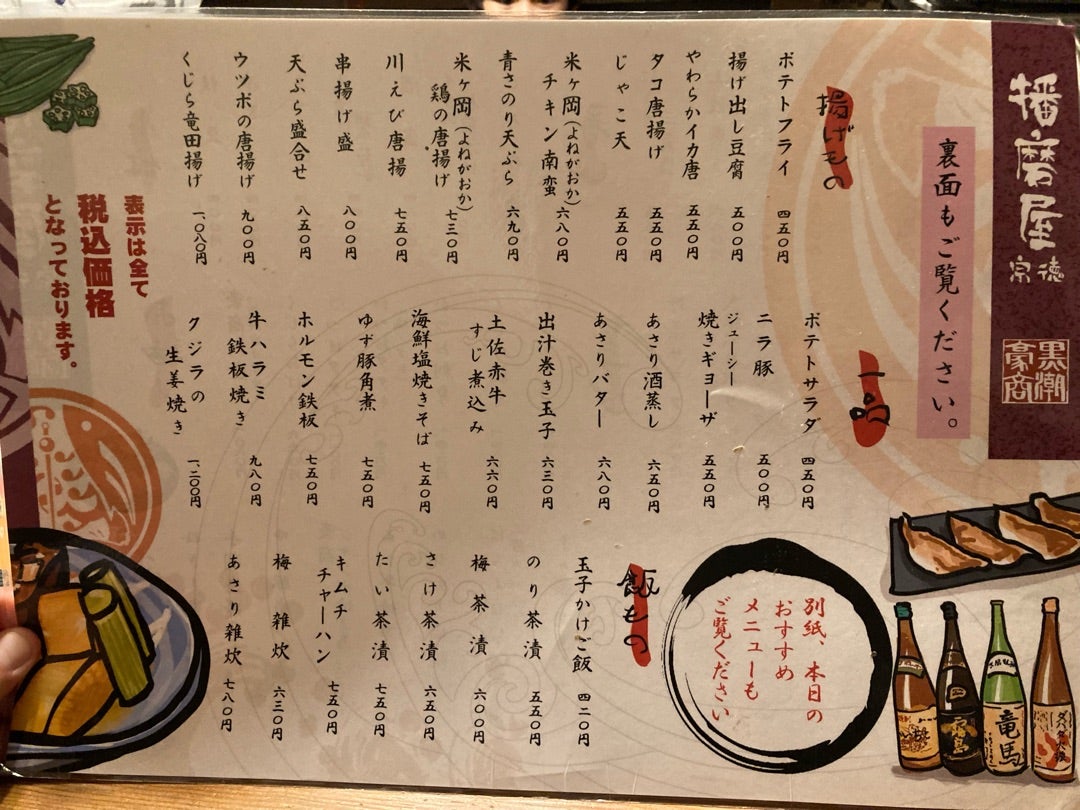 播磨屋
宗徳
黒潮
豪商
裏面もご覧ください。
揚げもの
ポテトフライ 四五〇円
揚げ出し豆腐 五〇〇円
やわらかイカ唐 五五〇円
タコ唐揚げ 五五〇円
じゃこ天 五五〇円
米ヶ岡(よねがおか)
チキン南蛮 六八〇円
青さのり天ぷら 六九〇円
米ヶ岡(よねがおか)
鶏の唐揚げ 七三〇円
川えび唐揚 七五〇円
串揚げ盛 八〇〇円
天ぷら盛合せ 八五〇円
ウツボの唐揚げ 九〇〇円
くじら竜田揚げ 一、〇八〇円
表示は全て
税込価格
となっております。
一品
ポテトサラダ 四五〇円
ニラ豚 五〇〇円
ジューシー
焼きギョーザ 五五〇円
あさり酒蒸し 六五〇円
あさりバター 六八〇円
出汁巻き玉子 六三〇円
土佐赤牛
すじ煮込み 六六〇円
海鮮塩焼きそば 七五〇円
ゆず豚角煮 七五〇円
ホルモン鉄板 七五〇円
牛ハラミ
鉄板焼き 九八〇円
クジラの
生姜焼き 一、二〇〇円
別紙、本日の
おすすめ
メニューも
ご覧ください
飯もの
玉子かけご飯 四二〇円
のり茶漬 五五〇円
梅茶漬 六〇〇円
さけ茶漬 六五〇円
たい茶漬 七五〇円
キムチ
チャーハン 七五〇円
梅雑炊 六三〇円
あさり雑炊 七八〇円
竜馬